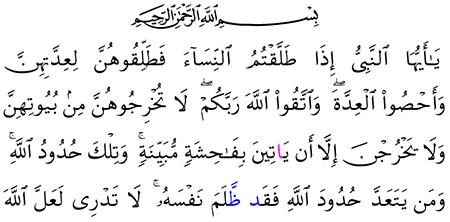 بِسْمِ ٱللَّهِ ٱلرَّحْمَٰنِ ٱلرَّحِيمِ
يَـٰٓأَيُّهَا ٱلنَّبِىُّ إِذَا طَلَّقْتُمُ ٱلنِّسَآءَ فَطَلِّقُوهُنَّ لِعِدَّتِهِنَّ
وَأَحْصُوا۟ ٱلْعِدَّةَ ۖ وَٱتَّقُوا۟ ٱللَّهَ رَبَّكُمْ ۖ لَا تُخْرِجُوهُنَّ مِنۢ بُيُوتِهِنَّ
وَلَا يَخْرُجْنَ إِلَّآ أَن يَاتِينَ بِفَـٰحِشَةٍ مُّبَيِّنَةٍ ۚ وَتِلْكَ حُدُودُ ٱللَّهِ ۚ
وَمَن يَتَعَدَّ حُدُودَ ٱللَّهِ فَقَد ظَّلَمَ نَفْسَهُۥ ۚ لَا تَدْرِى لَعَلَّ ٱللَّهَ